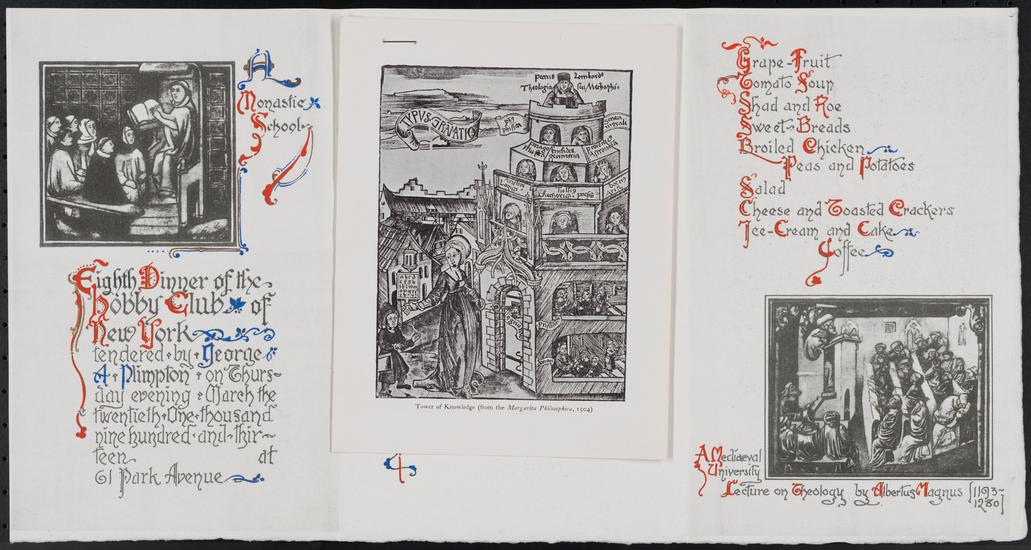 A
Monastic
School
Eighth Dinner of the
Hobby Club of
New York
tendered · by · George
A · Plimpton · on Thurs-
day evening · March the
twentieth · One · thousand
nine hundred · and · thir-
teen at
61 Park Avenue
Petrus Lombardus
Theologia seu Metaphi:
TYPVS
Tower of Knowledge (from the Margarita Philosophica, 1504)
Grape-Fruit
Tomato Soup
Shad and Roe
Sweet-Breads
Broiled Chicken
Peas and Potatoes
Salad
Cheese and Toasted Crackers
Ice-Cream and Cake
Coffee
A Mediaeval
University
Lecture on Theology by Albertus Magnus [1193-
1280]